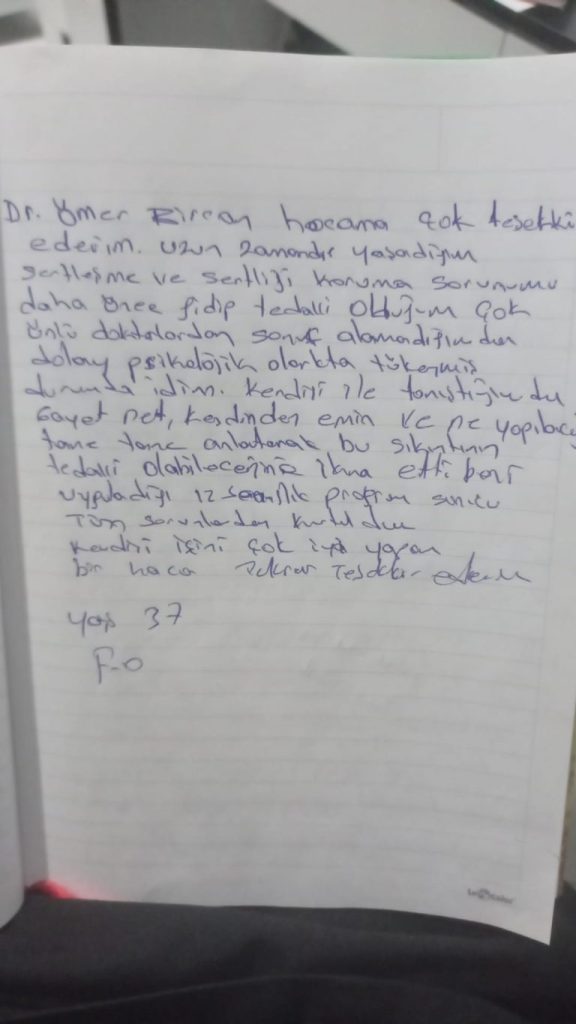 Dr. Ömer Bircan hocama çok teşekki
ederim. uzun zamandır yaşadığım
sertleşme ve sertliği koruma sorunumu
daha önce gidip tedavi olduğum çok
ünlü doktorlardan sonuç alamadığımdan
dolayı psikolojik olarakta tükenmiş
durumda idim. kendisi ile tanıştığımda
Gayet net, kendinden emin ve ne yapılacağ
tane tane anlatarak bu sıkıntının
tedavi olabileceğine ikna etti beni
uyguladığı 12 seanslık program sonucu
Tüm sorunlardan kurtuldum
kendisi işini çok iyi yapan
bir hoca Tekrar Teşekkür ederim
yaş 37
F.O